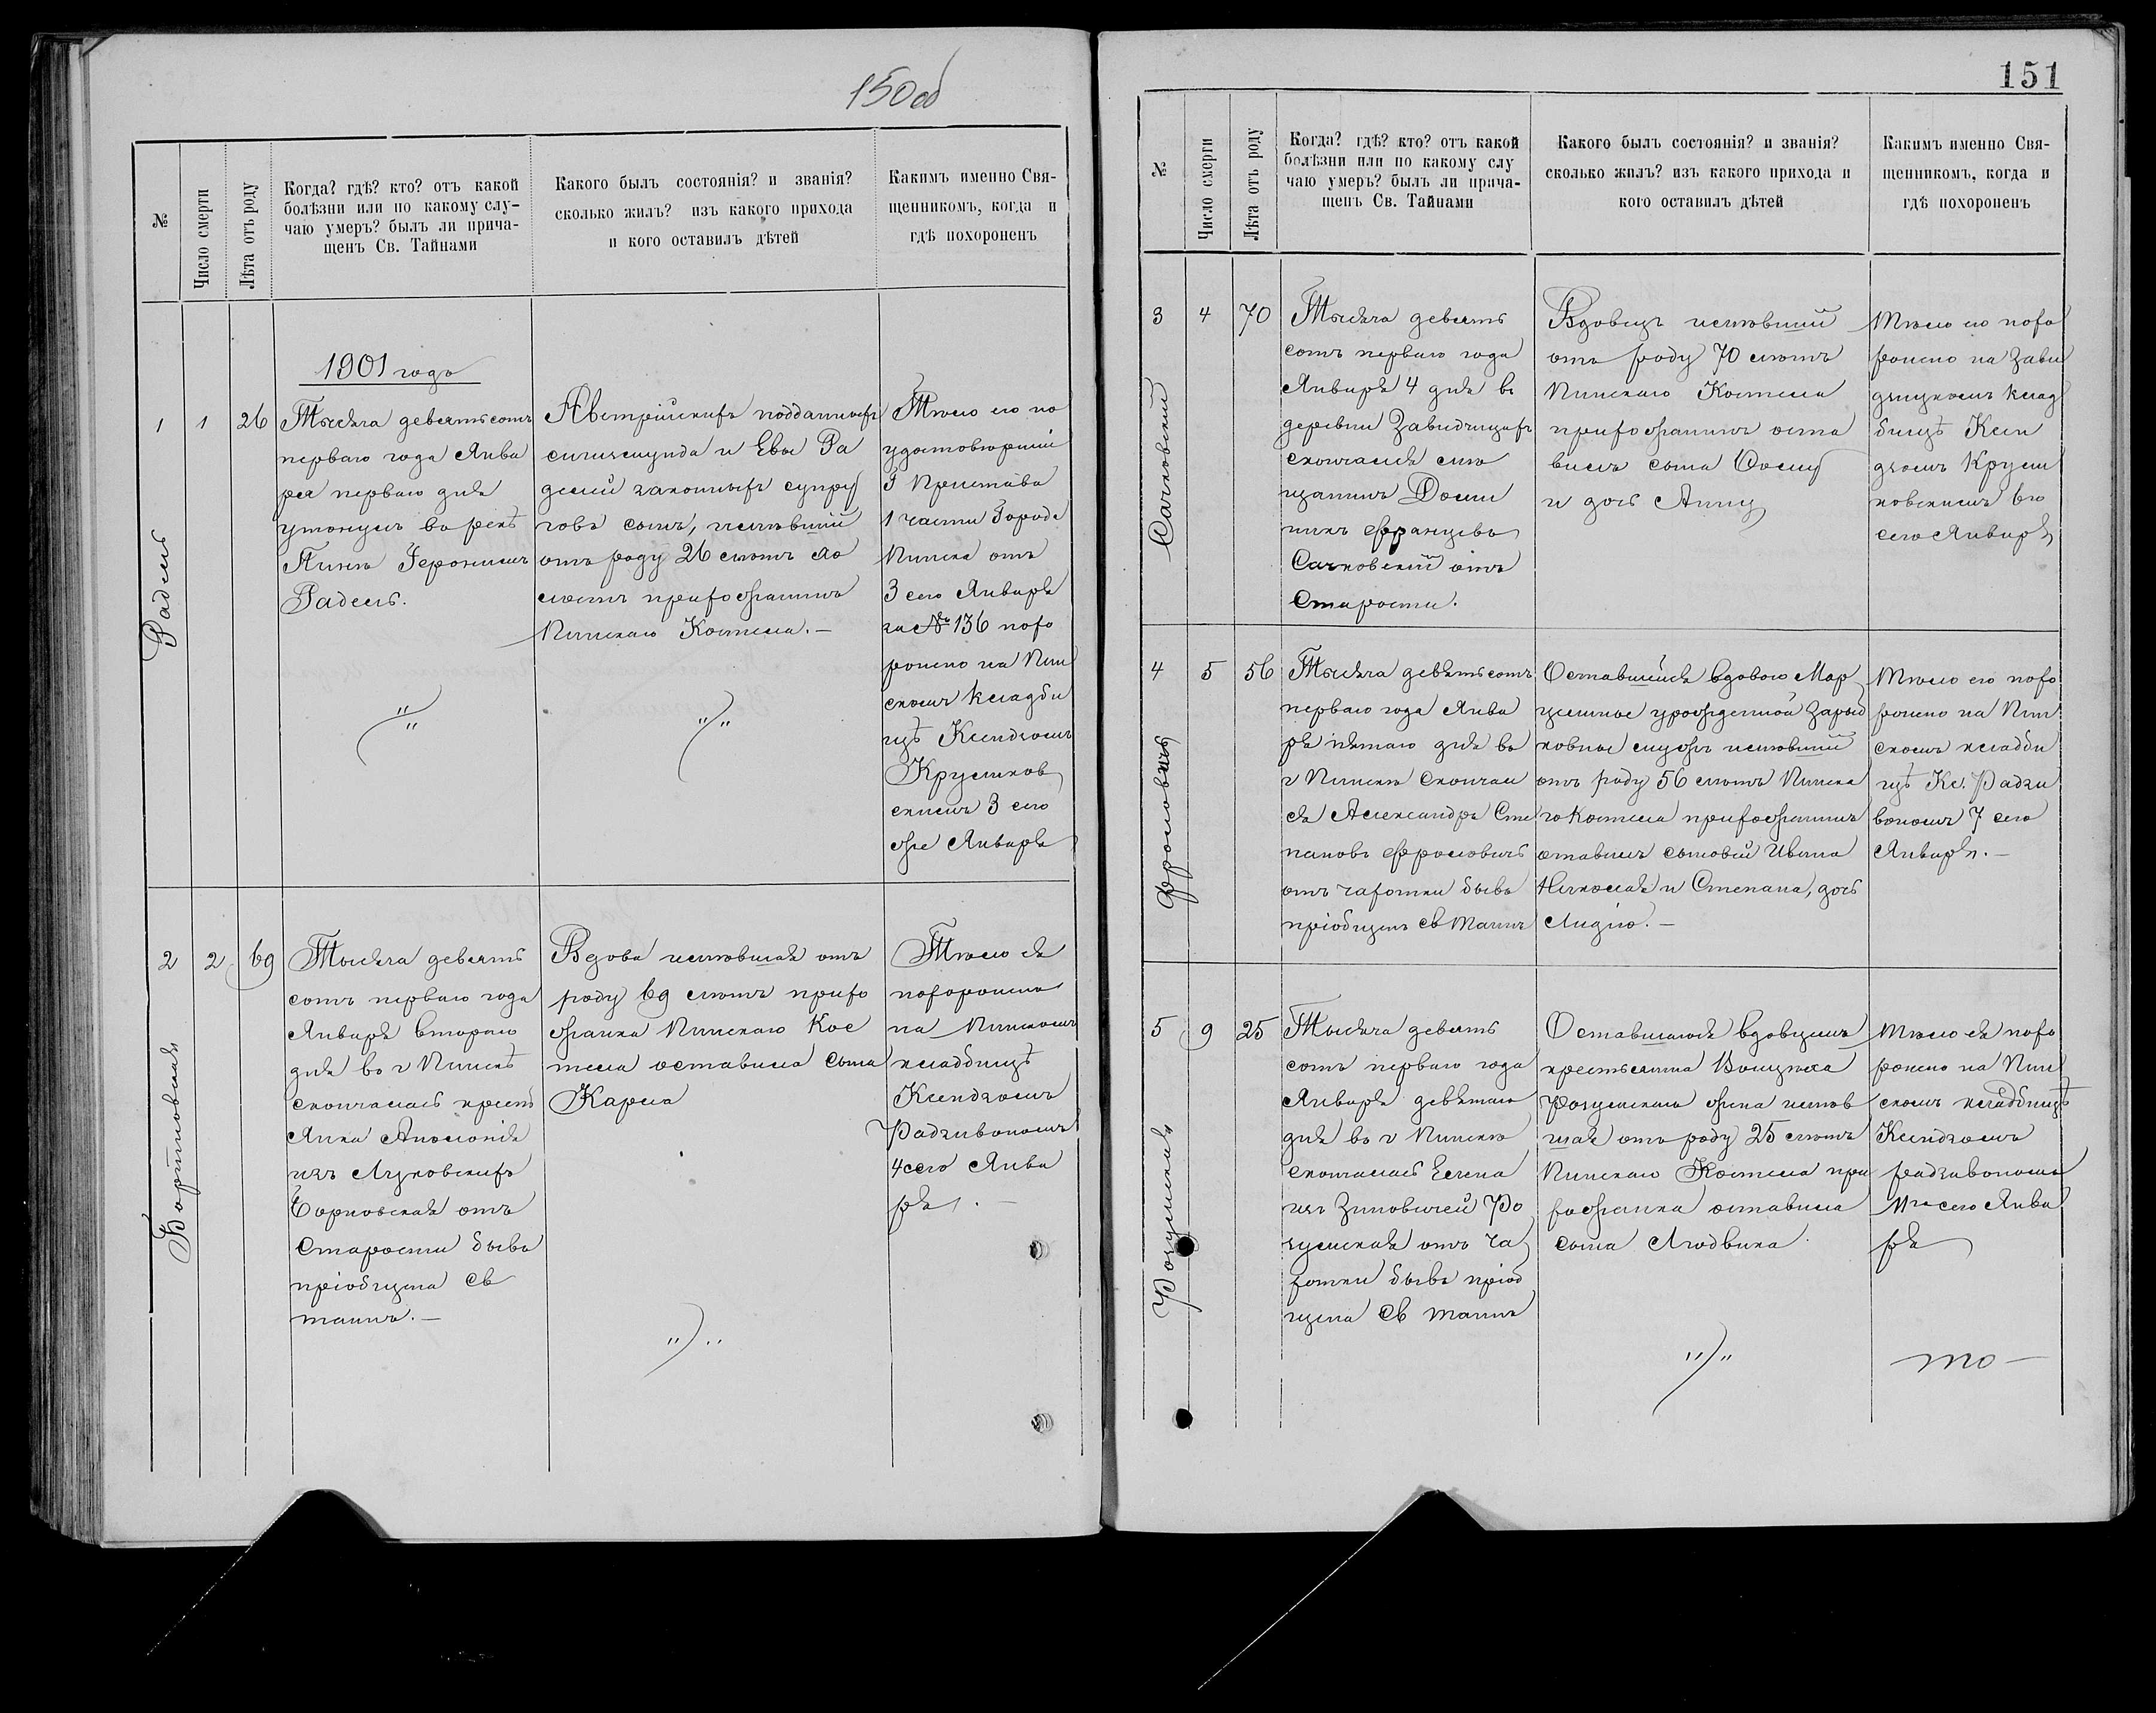 150об
№
Число смерти
Лѣта отъ роду
Когда? гдѣ? кто? отъ какой
болѣзни или по какому слу-
чаю умеръ? былъ ли прича-
щенъ Св. Тайнами
Какого былъ состоянія? и званія?
сколько жилъ? изъ какого прихода
и кого оставилъ дѣтей
Какимъ именно Свя-
щенникомъ, когда и
гдѣ похороненъ
1901 года
Радель
1
1
26
Тысяча девятьсотъ
перваго года Янва
ря перваго дня
утонулъ въ рекѣ
Пинѣ Іеронимъ
Радель.
Австрійскихъ подданныхъ
Сигизмунда и Евы Ра
делей законныхъ супру
говъ сынъ, имѣвшій
отъ роду 26 лѣтъ хо
лостъ прихожанинъ
Пинскаго Костела. —
Тѣло его по
удостовѣренію
Пристава
1 части Города
Пинска отъ
3 сего Января
за № 136 похо
ронено на Пин
скомъ кладби
щѣ Ксендзомъ
Круликов
скимъ 3 сего
же Января
Бортновская
2
2
69
Тысяча девять
сотъ перваго года
Января втораго
дня въ г Пинскѣ
скончалась крест
янка Аполонія
изъ Лузковскихъ
Бортновская отъ
старости бывъ
пріобщена Св
таинъ. —
Вдова имѣвшая отъ
роду 69 лѣтъ прихо
жанка Пинскаго Кос
тела оставила сына
Карла
Тѣло ея
похоронено
на Пинскомъ
кладбищѣ
Ксендзомъ
Радзивономъ
4 сего Янва
ря. —
151
№
Число смерти
Лѣта отъ роду
Когда? гдѣ? кто? отъ какой
болѣзни или по какому слу
чаю умеръ? былъ ли прича-
щенъ Св. Тайнами
Какого былъ состоянія? и званія?
сколько жилъ? изъ какого прихода и
кого оставилъ дѣтей
Какимъ именно Свя-
щенникомъ, когда и
гдѣ похороненъ
Сачковский
3
4
70
Тысяча девять
сотъ перваго года
Января 4 дня въ
деревни Завидчицахъ
скончался мѣ
щанинъ Доми
никъ Францевъ
Сачковский отъ
Старости.
Вдовецъ имѣвший
отъ роду 70 лѣтъ
Пинскаго Костела
прихожанинъ оста
вилъ сына Осипа
и дочь Анну
Тѣло его похо
ронено на Зави
дчицкомъ клад
бищѣ Ксен
дзомъ Крули
ковскимъ 6го
сего Января
Фроловичъ
4
5
56
Тысяча девятьсотъ
перваго года Янва
ря пятаго дня въ
г Пинскѣ скончал
ся Александръ Сте
пановъ Фроловичъ
отъ чахотки бывъ
пріобщенъ Св Таинъ
Оставшейся вдовою Мар
целины урожденной Заряд
ковны мужъ имѣвший
отъ роду 56 лѣтъ Пинска
го Костела прихожанинъ
оставилъ сыновей Ивана
Николая и Степана, дочь
Лидію. —
Тѣло его похо
ронено на Пин
скомъ кладби
щѣ Кс. Радзи
вономъ 7 сего
Января. —
5
9
25
Тысяча девять
сотъ перваго года
Января девятаго
дня въ г Пинскѣ
скончалась Елена
изъ Зиновичей Ро
отъ ча
хотки бывъ пріоб
щена Св таинъ
Оставшагося вдовцемъ
крестьянина Войцѣха
жена имѣв
шая отъ роду 25 лѣтъ
Пинскаго Костела при
хожанка оставила
сына Людвика
Тѣло ея похо
ронено на Пин
скомъ кладбищѣ
Ксендзомъ
Радзивономъ
11го сего Янва
ря